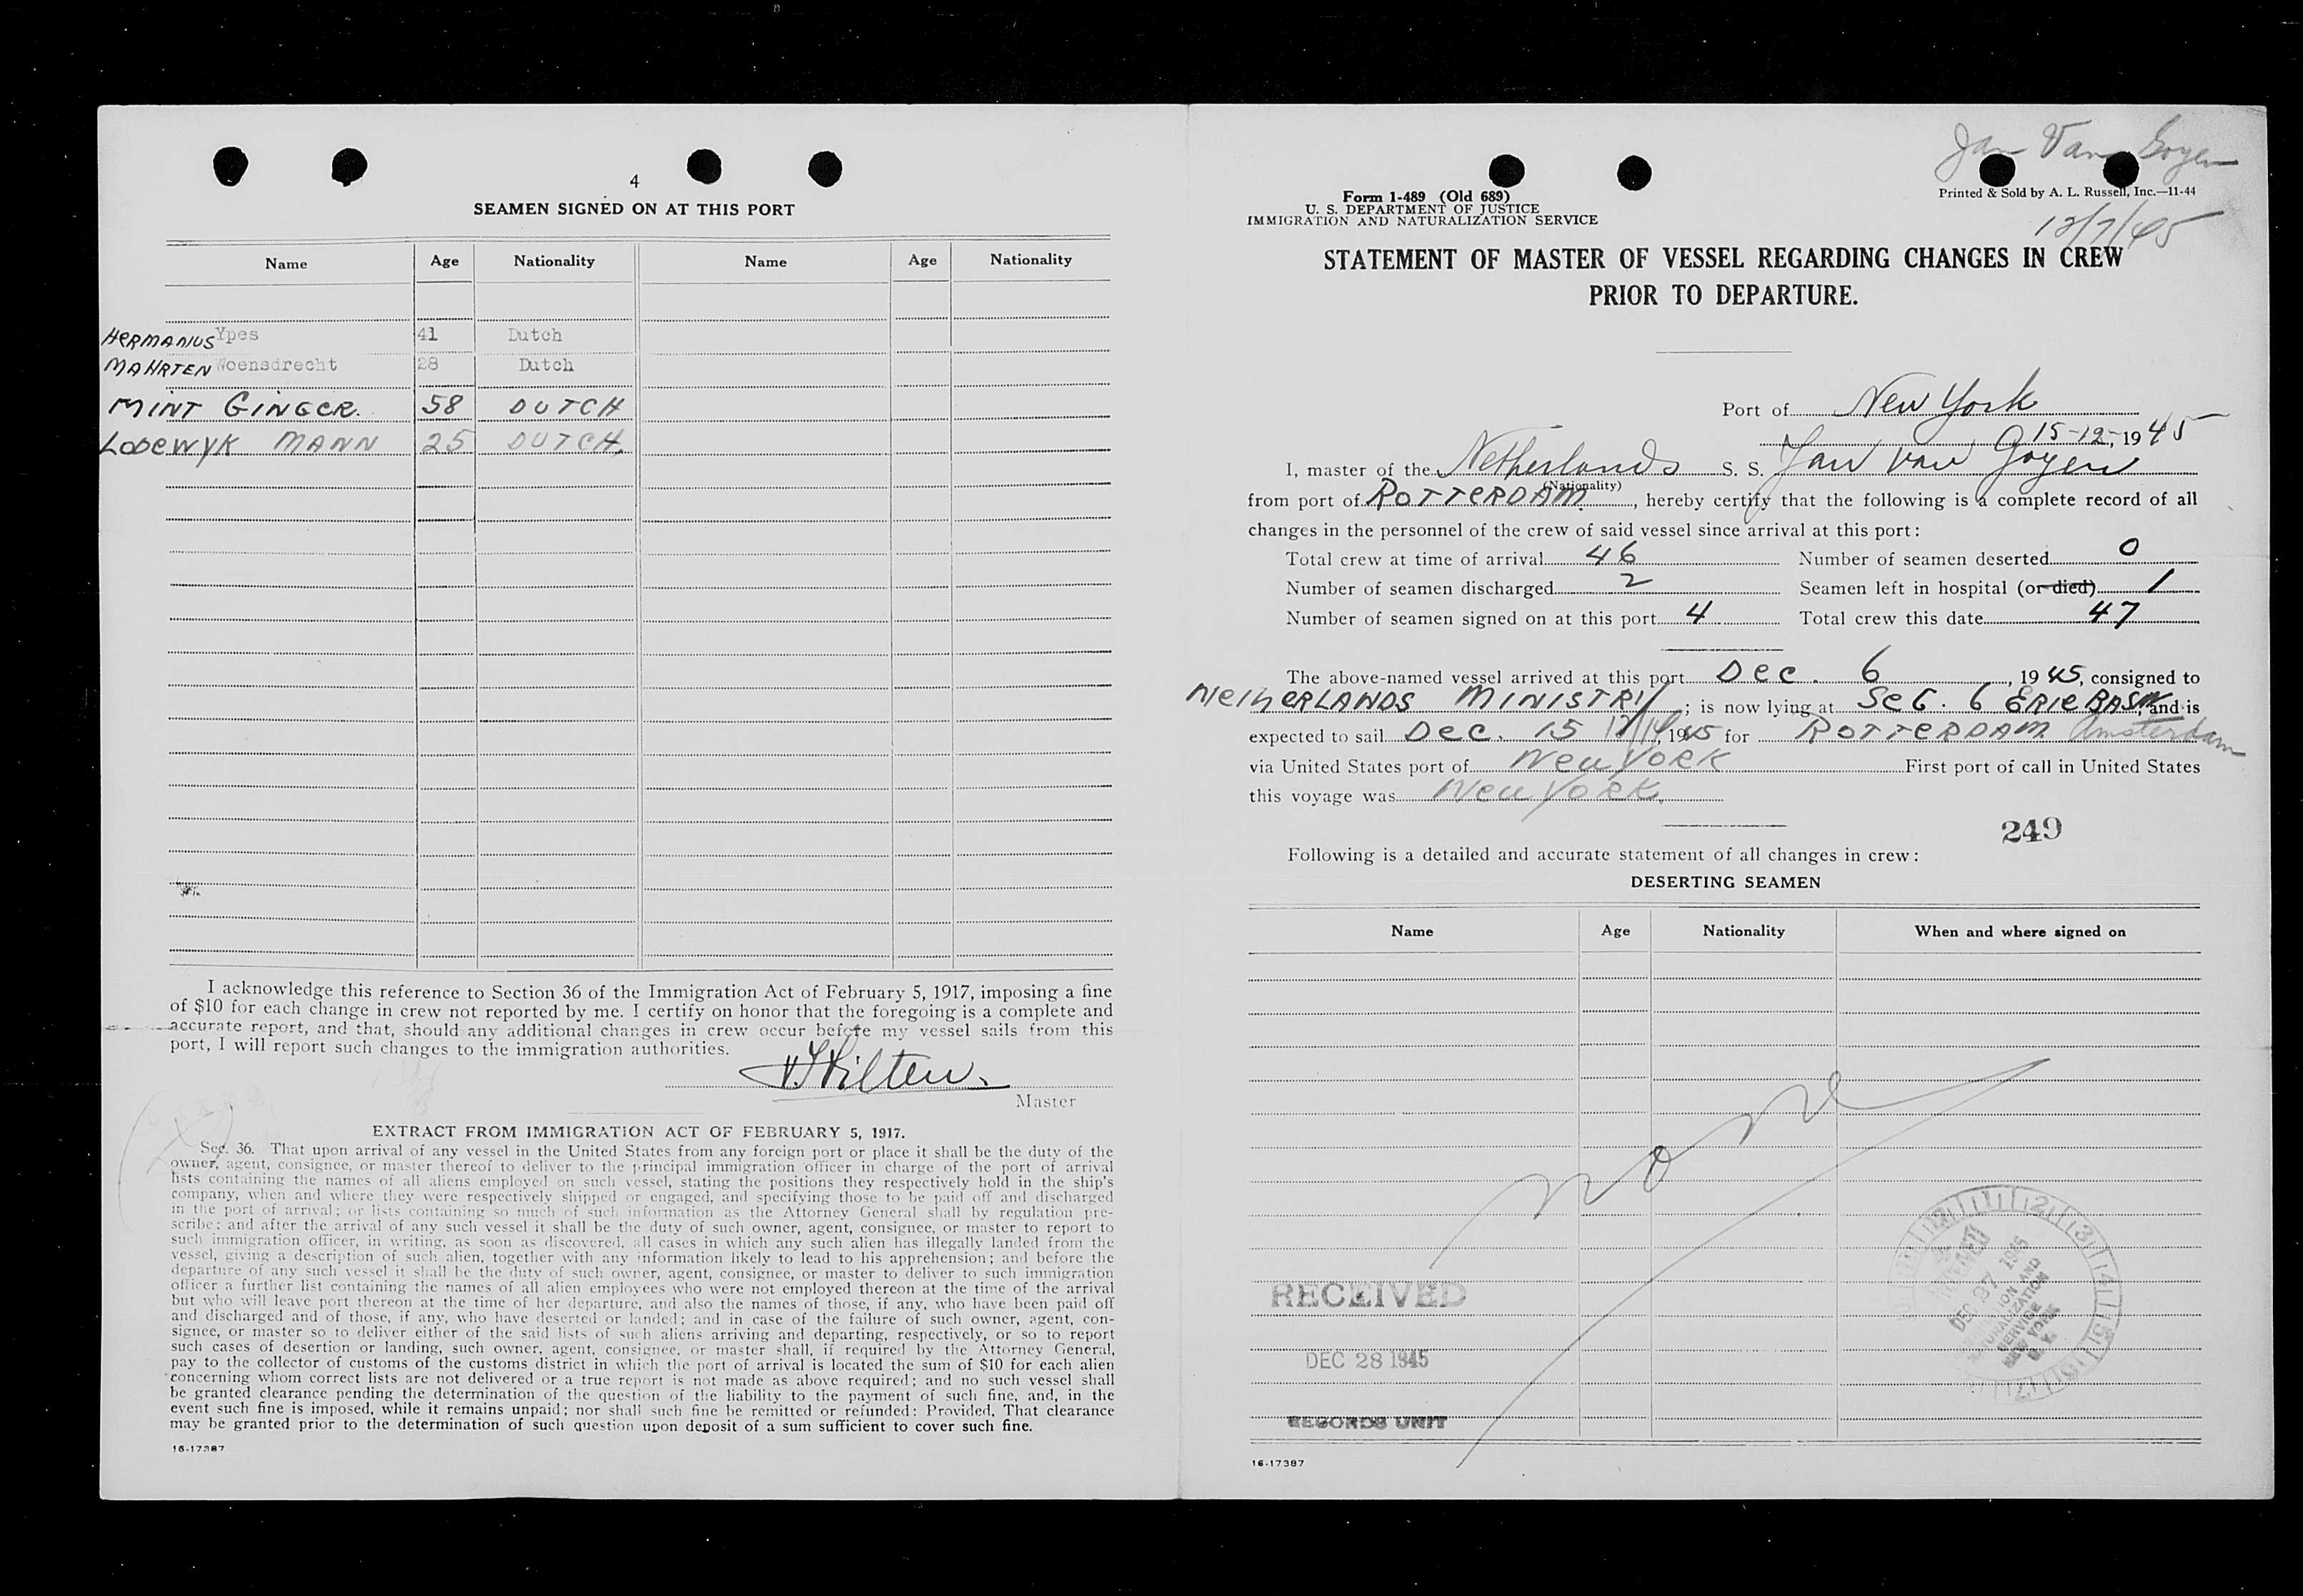 4
SEAMEN SIGNED ON AT THIS PORT
Name Age Nationality Name Age Nationality
HERMANUS Ypes 41 Dutch
MAHRTEN Woensdrecht 28 Dutch
MINT GINGER. 58 DUTCH
LODEWYK MANN 25 DUTCH.
I acknowledge this reference to Section 36 of the Immigration Act of February 5, 1917, imposing a fine
of $10 for each change in crew not reported by me. I certify on honor that the foregoing is a complete and
accurate report, and that, should any additional changes in crew occur before my vessel sails from this
port, I will report such changes to the immigration authorities.
Master
EXTRACT FROM IMMIGRATION ACT OF FEBRUARY 5, 1917.
Sec. 36. That upon arrival of any vessel in the United States from any foreign port or place it shall be the duty of the
owner, agent, consignee, or master thereof to deliver to the principal immigration officer in charge of the port of arrival
lists containing the names of all aliens employed on such vessel, stating the positions they respectively hold in the ship's
company, when and where they were respectively shipped or engaged, and specifying those to be paid off and discharged
in the port of arrival; or lists containing so much of such information as the Attorney General shall by regulation pre-
scribe; and after the arrival of any such vessel it shall be the duty of such owner, agent, consignee, or master to report to
such immigration officer, in writing, as soon as discovered, all cases in which any such alien has illegally landed from the
vessel, giving a description of such alien, together with any information likely to lead to his apprehension; and before the
departure of any such vessel it shall be the duty of such owner, agent, consignee, or master to deliver to such immigration
officer a further list containing the names of all alien employees who were not employed thereon at the time of the arrival
but who will leave port thereon at the time of her departure, and also the names of those, if any, who have been paid off
and discharged and of those, if any, who have deserted or landed; and in case of the failure of such owner, agent, con-
signee, or master so to deliver either of the said lists of such aliens arriving and departing, respectively, or so to report
such cases of desertion or landing, such owner, agent, consignee, or master shall, if required by the Attorney General,
pay to the collector of customs of the customs district in which the port of arrival is located the sum of $10 for each alien
concerning whom correct lists are not delivered or a true report is not made as above required; and no such vessel shall
be granted clearance pending the determination of the question of the liability to the payment of such fine, and, in the
event such fine is imposed, while it remains unpaid; nor shall such fine be remitted or refunded: Provided, That clearance
may be granted prior to the determination of such question upon deposit of a sum sufficient to cover such fine.
16-17387
Jan Van Goyen
Form 1-489 (Old 689)
U. S. DEPARTMENT OF JUSTICE
IMMIGRATION AND NATURALIZATION SERVICE
Printed & Sold by A. L. Russell, Inc.—11-44
12/7/45
STATEMENT OF MASTER OF VESSEL REGARDING CHANGES IN CREW
PRIOR TO DEPARTURE.
Port of New York
15-12-, 1945
I, master of the Netherlands S. S. Jan van Goyen
(Nationality)
from port of ROTTERDAM, hereby certify that the following is a complete record of all
changes in the personnel of the crew of said vessel since arrival at this port:
Total crew at time of arrival 46 Number of seamen deserted 0
Number of seamen discharged 2 Seamen left in hospital (or died) 1
Number of seamen signed on at this port 4 Total crew this date 47
The above-named vessel arrived at this port Dec. 6, 1945, consigned to
NETHERLANDS MINISTRY; is now lying at SEC. 6 ERIE BASIN, and is
expected to sail Dec. 15 12/19, 1945 for ROTTERDAM Amsterdam
via United States port of New York First port of call in United States
this voyage was New York.
249
Following is a detailed and accurate statement of all changes in crew:
DESERTING SEAMEN
Name Age Nationality When and where signed on
none
RECEIVED
DEC 28 1945
RECORDS UNIT
DEC 27 1945
NATURALIZATION
SERVICE
NEW YORK
N. Y.
16-17387